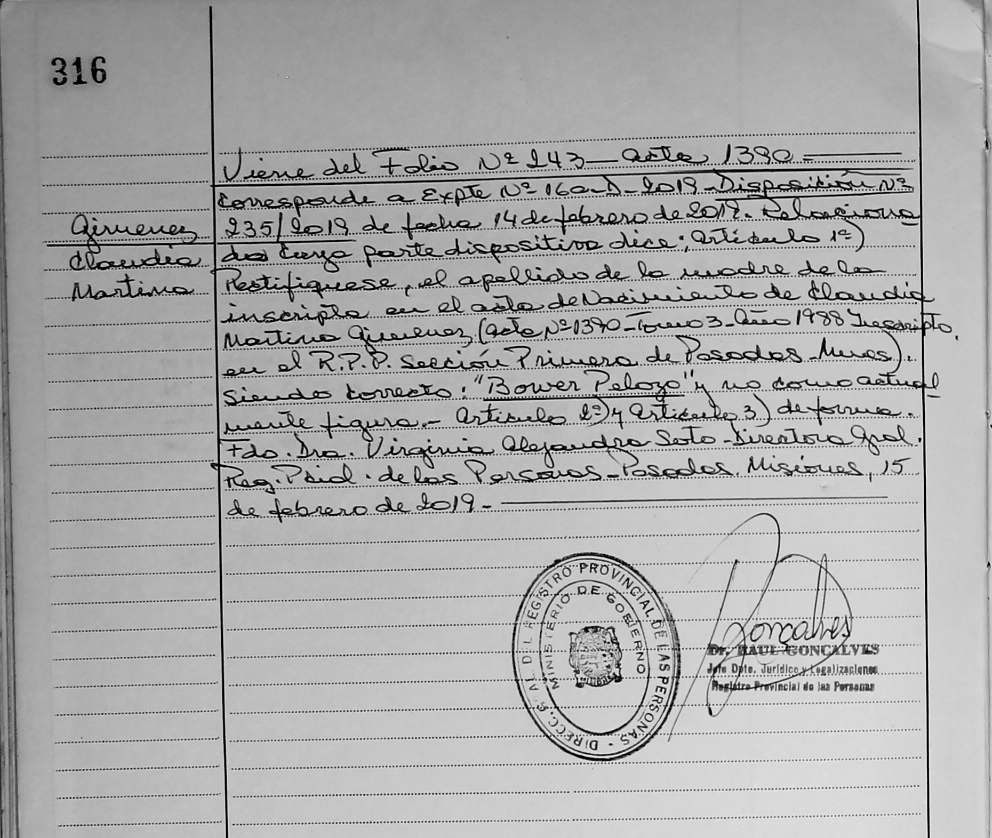 316
Viene del Folio Nº 243 — acta 1390 —
Corresponde a Expte Nº 160-D-2019-Disposición Nº
Gimenez
235/2019 de fecha 14 de febrero de 2019. Relaciona
Claudia
das Cuya parte dispositiva dice; Artículo 1º)
Martina
Rectifiquese, el apellido de la madre de la
inscripta en el acta de Nacimiento de Claudia
Martina Gimenez, (acta Nº 1390-Tomo 3-Año 1988 Inscripto
en el R.P.P. Sección Primera de Posadas-Mnes).
Siendo correcto: "Bower Pelozo" y no como actual
mente figura.- Artículo 2º) y Artículo 3) de forma.
Fdo. Dra. Virginia Alejandra Soto-Directora Gral.
Reg. Pcial. de las Personas-Posadas. Misiones, 15
de febrero de 2019-
DIRECC. GRAL DEL REGISTRO PROVINCIAL DE LAS PERSONAS -
MINISTERIO DE GOBIERNO
Gonçalves
Dr. RAUL GONCALVES
Jefe Dpto. Jurídico y Legalizaciones
Registro Provincial de las Personas